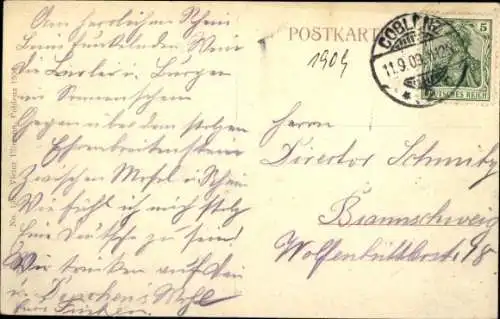 Am herrlichen Rhein
beim funkelnden Wein
die Lorlei u. Burgen
im Sonnenschein
Gegenüber des stolzen
Ehrenbreitenstein
Zwischen Mosel u. Rhein
Wie fühl ich mich stolz
eine Deutsche zu sein!
Wir trinken auf Dein
u. Wohl
POSTKARTE
1909
COBLENZ
11.9.09
5
DEUTSCHES REICH
Herrn
Director Schmitz
Braunschweig
Wolfenbüttlerstr.
No. Verlag Coblenz